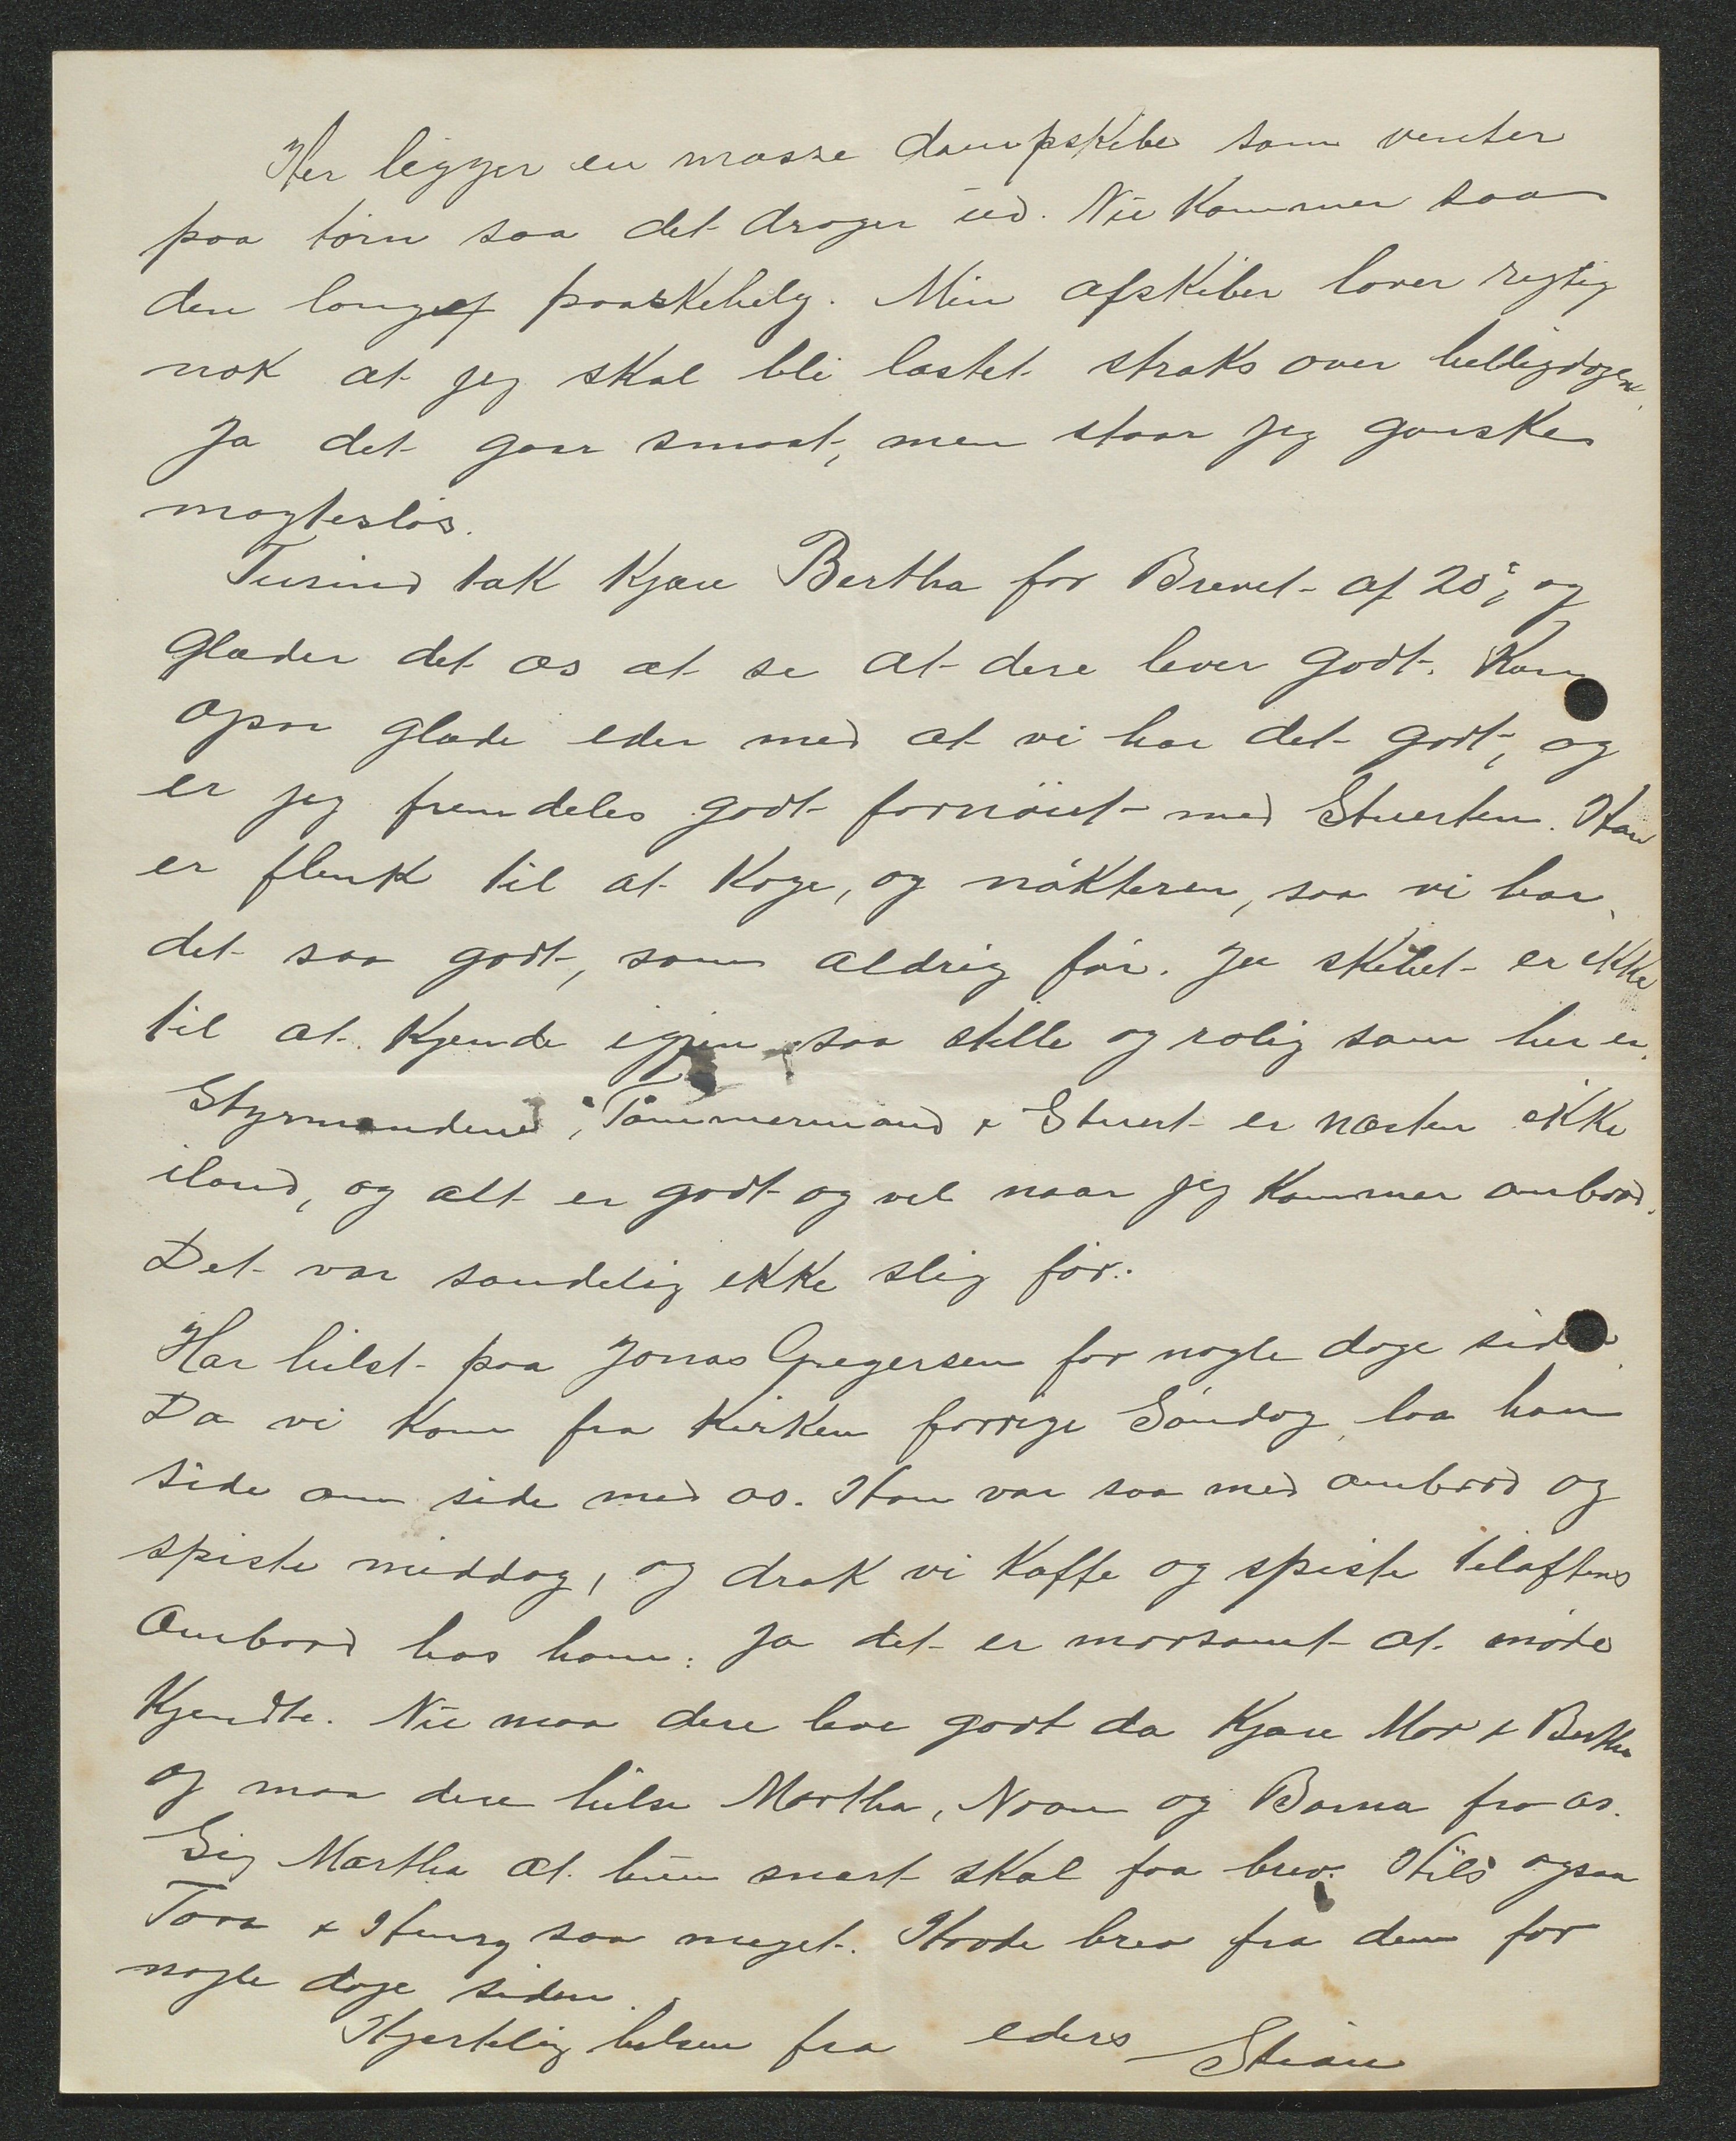 Her ligger en masse dampskibe som venter
paa törn saa det drager ud. Nu kommer saa
den lange paaskehelg. Min afskiber lover rigtig
nok at jeg skal bli lastet straks over helligdagen.
Ja det gaar smaat, men staar jeg ganske
magteslös.
Tusind tak kjære Bertha for Brevet af 20de, og
glæder det os at se at dere lever godt. Kan
ogsaa glæde eder med at vi har det godt, og
er jeg fremdeles godt fornöiet med Stuerten. Han
er flink til at koge, og nökteren, saa vi har
det saa godt, som aldrig för. Ja skibet er ikke
til at kjende igjen saa stille og rolig som her er.
Styrmandene, Tömmermand & Stuert er næsten ikke
iland, og alt er godt og vel naar jeg kommer ombord.
Det var sandelig ikke slig för.
Har hilst paa Jonas Gregersen for nogle dage siden.
Da vi kom fra kirken forrige Söndag, laa han
side om side med os. Han var saa med ombord og
spiste middag, og drak vi kaffe og spiste tilaftens
ombord hos ham. Ja det er morsomt at möde
kjendte. Nu maa dere leve godt da kjære Mor & Bertha
og maa dere hilse Martha, Noan og Barna fra os.
Sig Martha at hun snart skal faa brev. Hils ogsaa
Tora & Henry saa meget. Havde brev fra dem for
nogle dage siden.
Hjertelig hilsen fra eders Stian